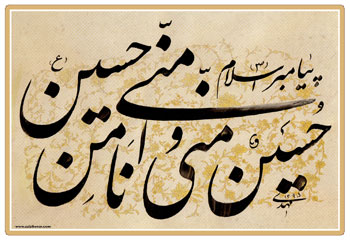 پیامبر اسلام (ص)
حسین منی و انا من حسین (ع)